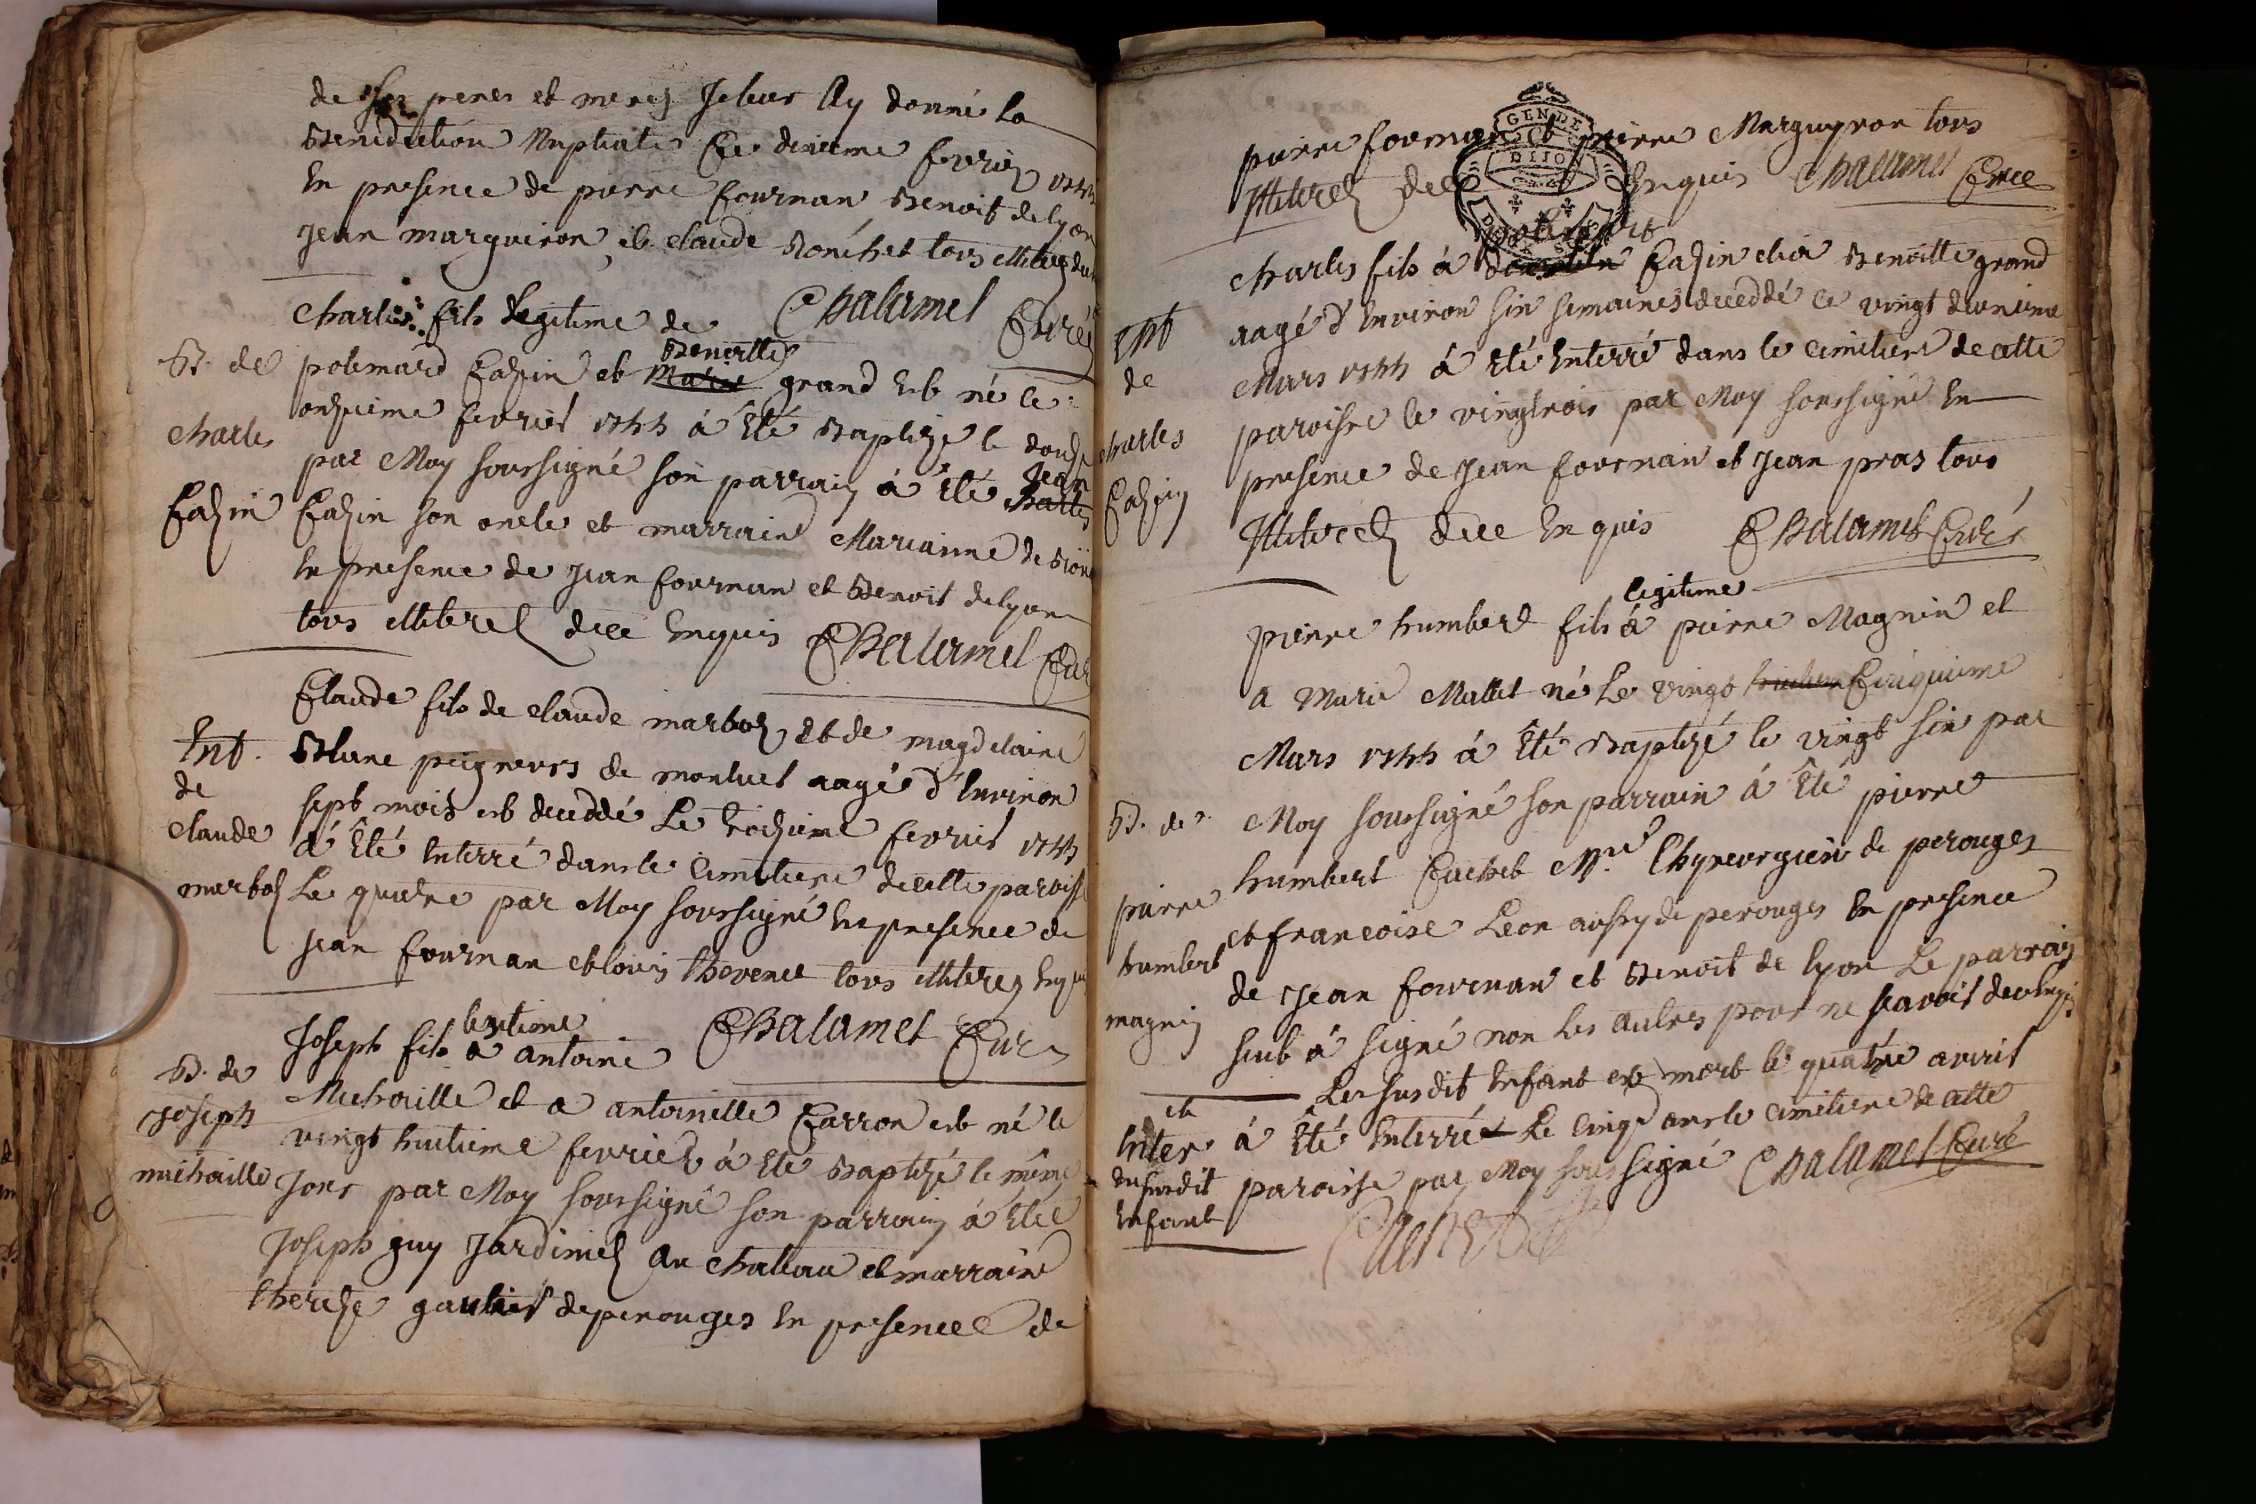 de ses peres et meres Je leur Ay donné la
Benediction Nuptiale Ce dixieme fevrier 1744
En presence de pierre fournan Benoit de lyon
Jean marguiron et claude Bonchet tous illiterez
charles fils legitime de Chalamel Curé
B. de polemard Cazin et Benoitte Marie grand est né le
onzieme fevrier 1744 à Eté Baptizé le douze
charles par Moy soussigné son parrain à Eté Jean charles
Cazin Cazin son oncle et marraine Marianne de
En presence de Jean fournan et Benoit de lyon
tous illiterez de ce Enquis Chalamel Curé
Claude fils de claude marboz et de magdelaine
Ent. Blanc peigneurs de montuel aagé d'Environ
de sept mois est deceddé Le troizieme fevrier 1744
claude à Eté Enterré dans le Cimetiere de cette paroisse
marboz Le quatre par Moy soussigné En presence de
Jean fournan et louis thevenet tous illiterez Enquis
Joseph fils legitime à antoine Chalamel Curé
B. de Michaille et a antoinette Carron est né le
Joseph vingt huitieme fevrier à Eté Baptizé le même
michaille Jour par Moy soussigné son parrain à Eté
Joseph guy Jardinier au chateau et marraine
therese gaultier de perouges En presence de
pierre fournan et pierre Marguyron tous
illiterez de ce Enquis Chalamel Curé
polemard
charles fils à Cazin et à Benoitte grand
Ent aagé d'Environ six semaines deceddé le vingt deuxieme
de Mars 1744 à Eté Enterré dans le cimetiere de cette
charles paroisse le vingtrois par Moy soussigné En
Cazin presence de Jean fournan et Jean pras tous
illiterez de ce Enquis Chalamel Curé
legitime
pierre humbert fils à pierre Magnin et
a Marie Mallet né Le vingt huitieme Cinquieme
Mars 1744 à Eté Baptizé le vingt six par
B. de Moy soussigné son parrain à Eté pierre
pierre humbert Cachet Mre Chyrurgien de perouges
humbert et francoise Leon aussy de perouges En presence
magnin de Jean fournan et Benoit de lyon Le parrain
seul à signé non les autres pour ne scavoir de ce Enquis
et Le susdit Enfant est mort le quatre avril
Enter à Eté Enterré Le cinq dans le cimetiere de cette
du susdit paroisse par Moy soussigné Chalamel Curé
Enfant
GEN DE
DIJON